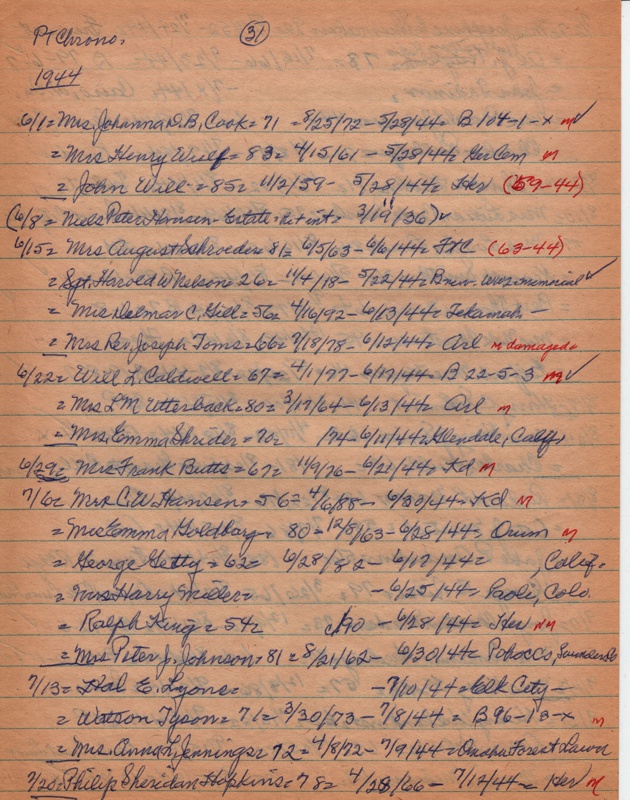 Pt Chrono. 31
1944
6/1 = Mrs. Johanna D.B. Cook = 71 = 8/25/72 - 5/28/44 = B 104-1-x m ✓
= Mrs Henry Wulf = 83 = 4/15/61 - 5/28/44 = Ger Cem m
= John Will = 85 = 11/2/59 - 5/28/44 = Her (59-44)
(6/8 = Niels Peter Hansen - Estate = 3/19/36) ✓
6/15 = Mrs August Schroeder = 81 = 6/5/63 - 6/6/44 = FtC (63-44)
= Sgt. Harold W Nelson = 26 = 11/4/18 - 5/22/44 = memorial ✓
= Mrs Delmar C. Gill = 56 = 4/16/92 - 6/13/44 = Tekamah -
= Mrs Rev Joseph Toms = 66 = 7/18/78 - 6/12/44 = Arl m damaged
6/22 = Will L. Caldwell = 67 = 4/1/77 - 6/17/44 = B 22-5-3 m ✓
= Mrs L M Utterback = 80 = 3/17/64 - 6/13/44 = Arl m
= Mrs. Emma Shrider = 70 = /74 - 6/11/44 = Glendale, Calif,
6/29 = Mrs Frank Butts = 67 = 11/9/76 - 6/21/44 = Kd m
7/6 = Mrs C. W. Hansen = 56 = 4/6/88 - 6/30/44 = Kd m
= Mrs Emma Goldberg = 80 = 12/8/63 - 6/28/44 = Orum m
= George Getty = 62 = 6/28/82 - 6/17/44 = , Calif =
= Mrs Harry Miller = - 6/25/44 = Paoli, Colo.
= Ralph King = 54 = c/90 - 6/28/44 = Her NM
= Mrs Peter J. Johnson = 81 = 8/21/62 - 6/30/44 = Saunders Co
7/13 = Hal E. Lyons = - 7/10/44 = Elk City -
= Watson Tyson = 71 = 3/30/73 - 7/8/44 = B 96-13-x m
= Mrs. Anna L. Jennings = 72 = 4/8/72 - 7/9/44 = Omaha Forest Lawn
7/20 = Philip Sheridan Hopkins = 78 = 4/28/66 - 7/12/44 = Her m